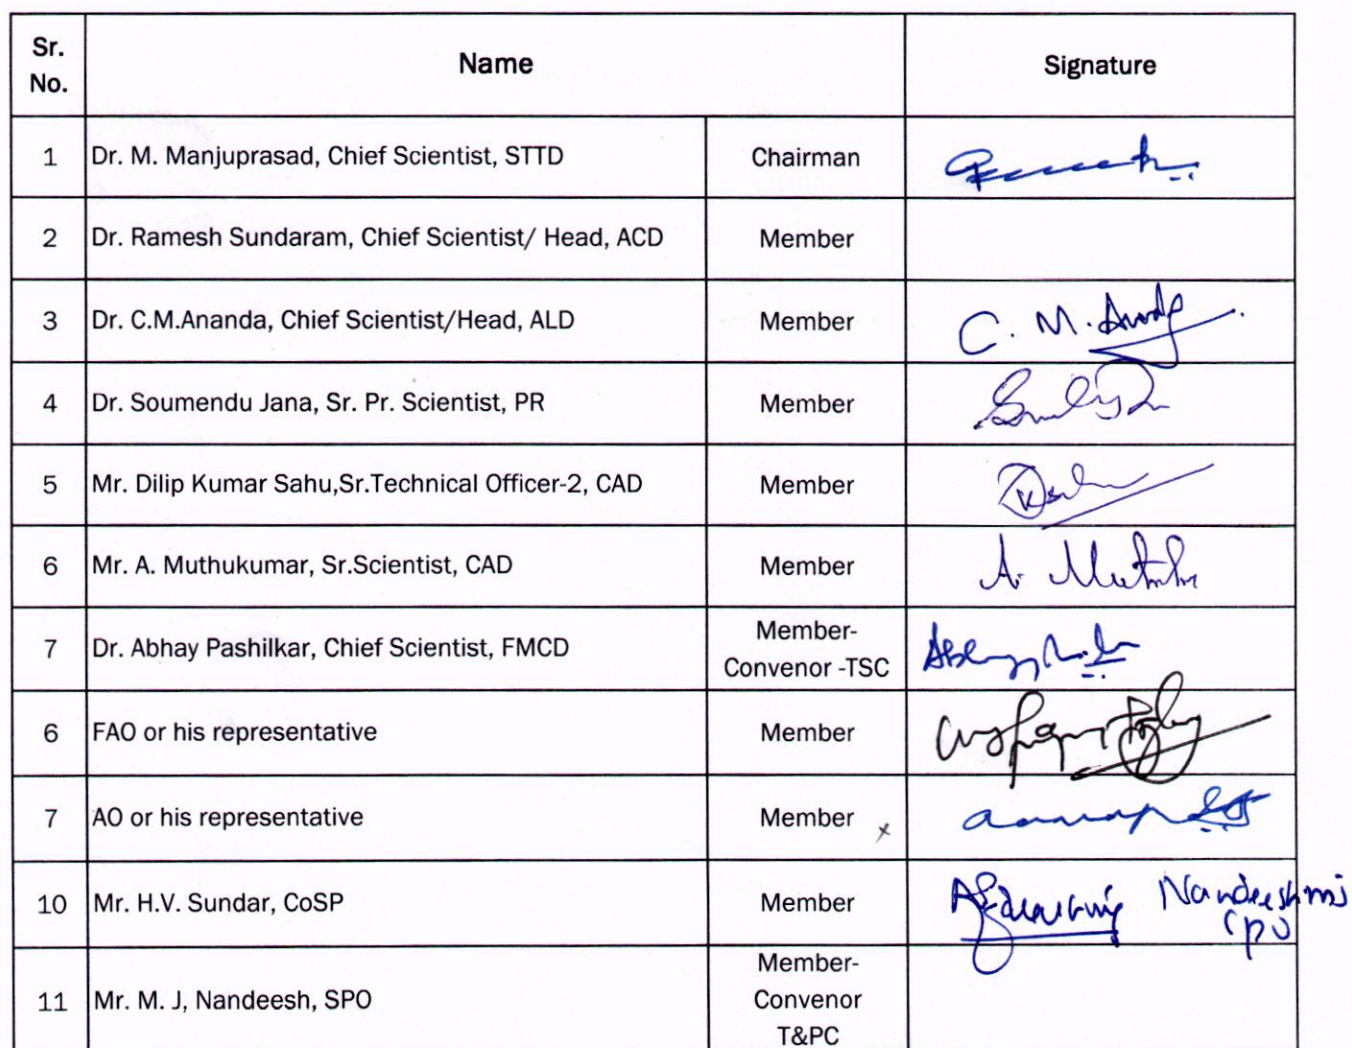 Sr. No.
Name
Signature
1 Dr. M. Manjuprasad, Chief Scientist, STTD Chairman
2 Dr. Ramesh Sundaram, Chief Scientist/ Head, ACD Member
3 Dr. C.M.Ananda, Chief Scientist/Head, ALD Member C. M.
4 Dr. Soumendu Jana, Sr. Pr. Scientist, PR Member
5 Mr. Dilip Kumar Sahu,Sr.Technical Officer-2, CAD Member
6 Mr. A. Muthukumar, Sr.Scientist, CAD Member A.
7 Dr. Abhay Pashilkar, Chief Scientist, FMCD Member-
Convenor -TSC
6 FAO or his representative Member
7 AO or his representative Member x
10 Mr. H.V. Sundar, CoSP Member Nandeesh mj
11 Mr. M. J, Nandeesh, SPO Member-
Convenor
T&PC